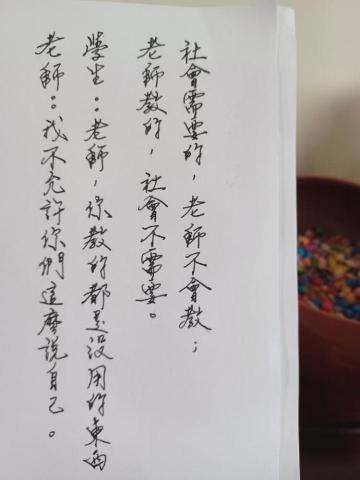 社會需要的，老師不會教；
老師教的，社會不需要。
學生：老師，你教的都是沒用的東西
老師：我不允許你們這麼說自己。